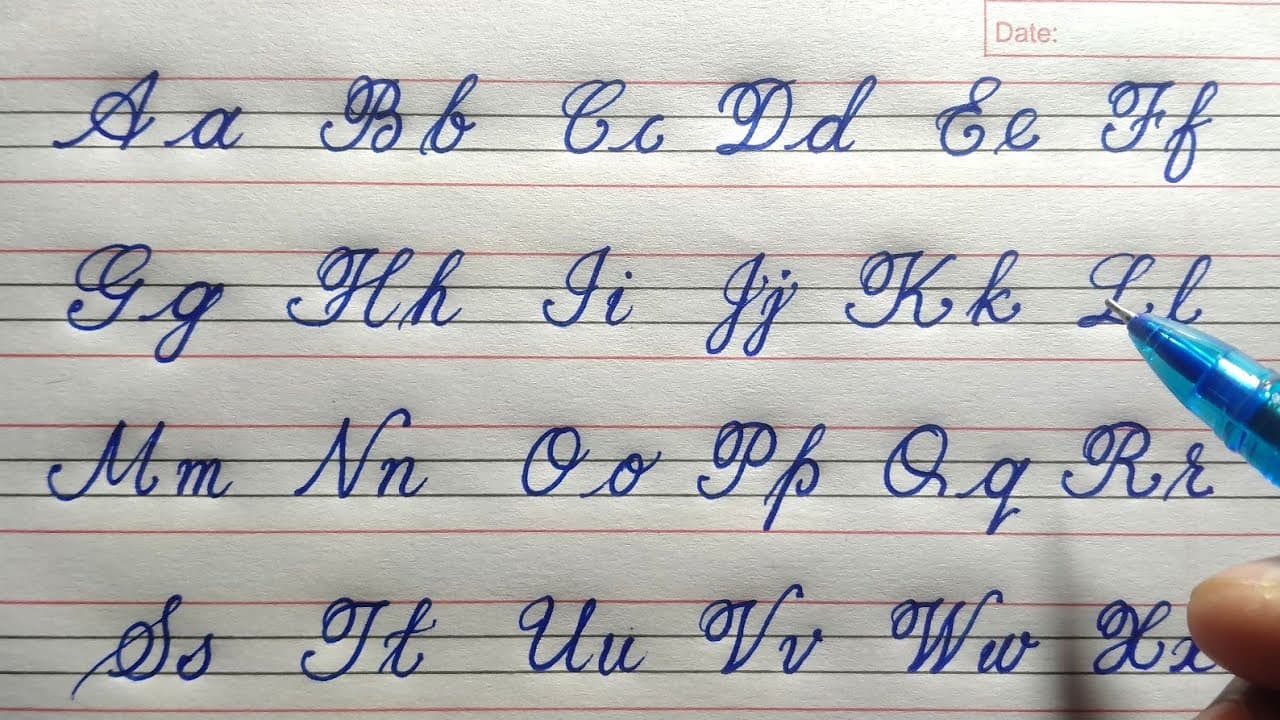 Date:
A a B b C c D d E e F f
G g H h I i J j K k L l
M m N n O o P p Q q R r
S s T t U u V v W w X x